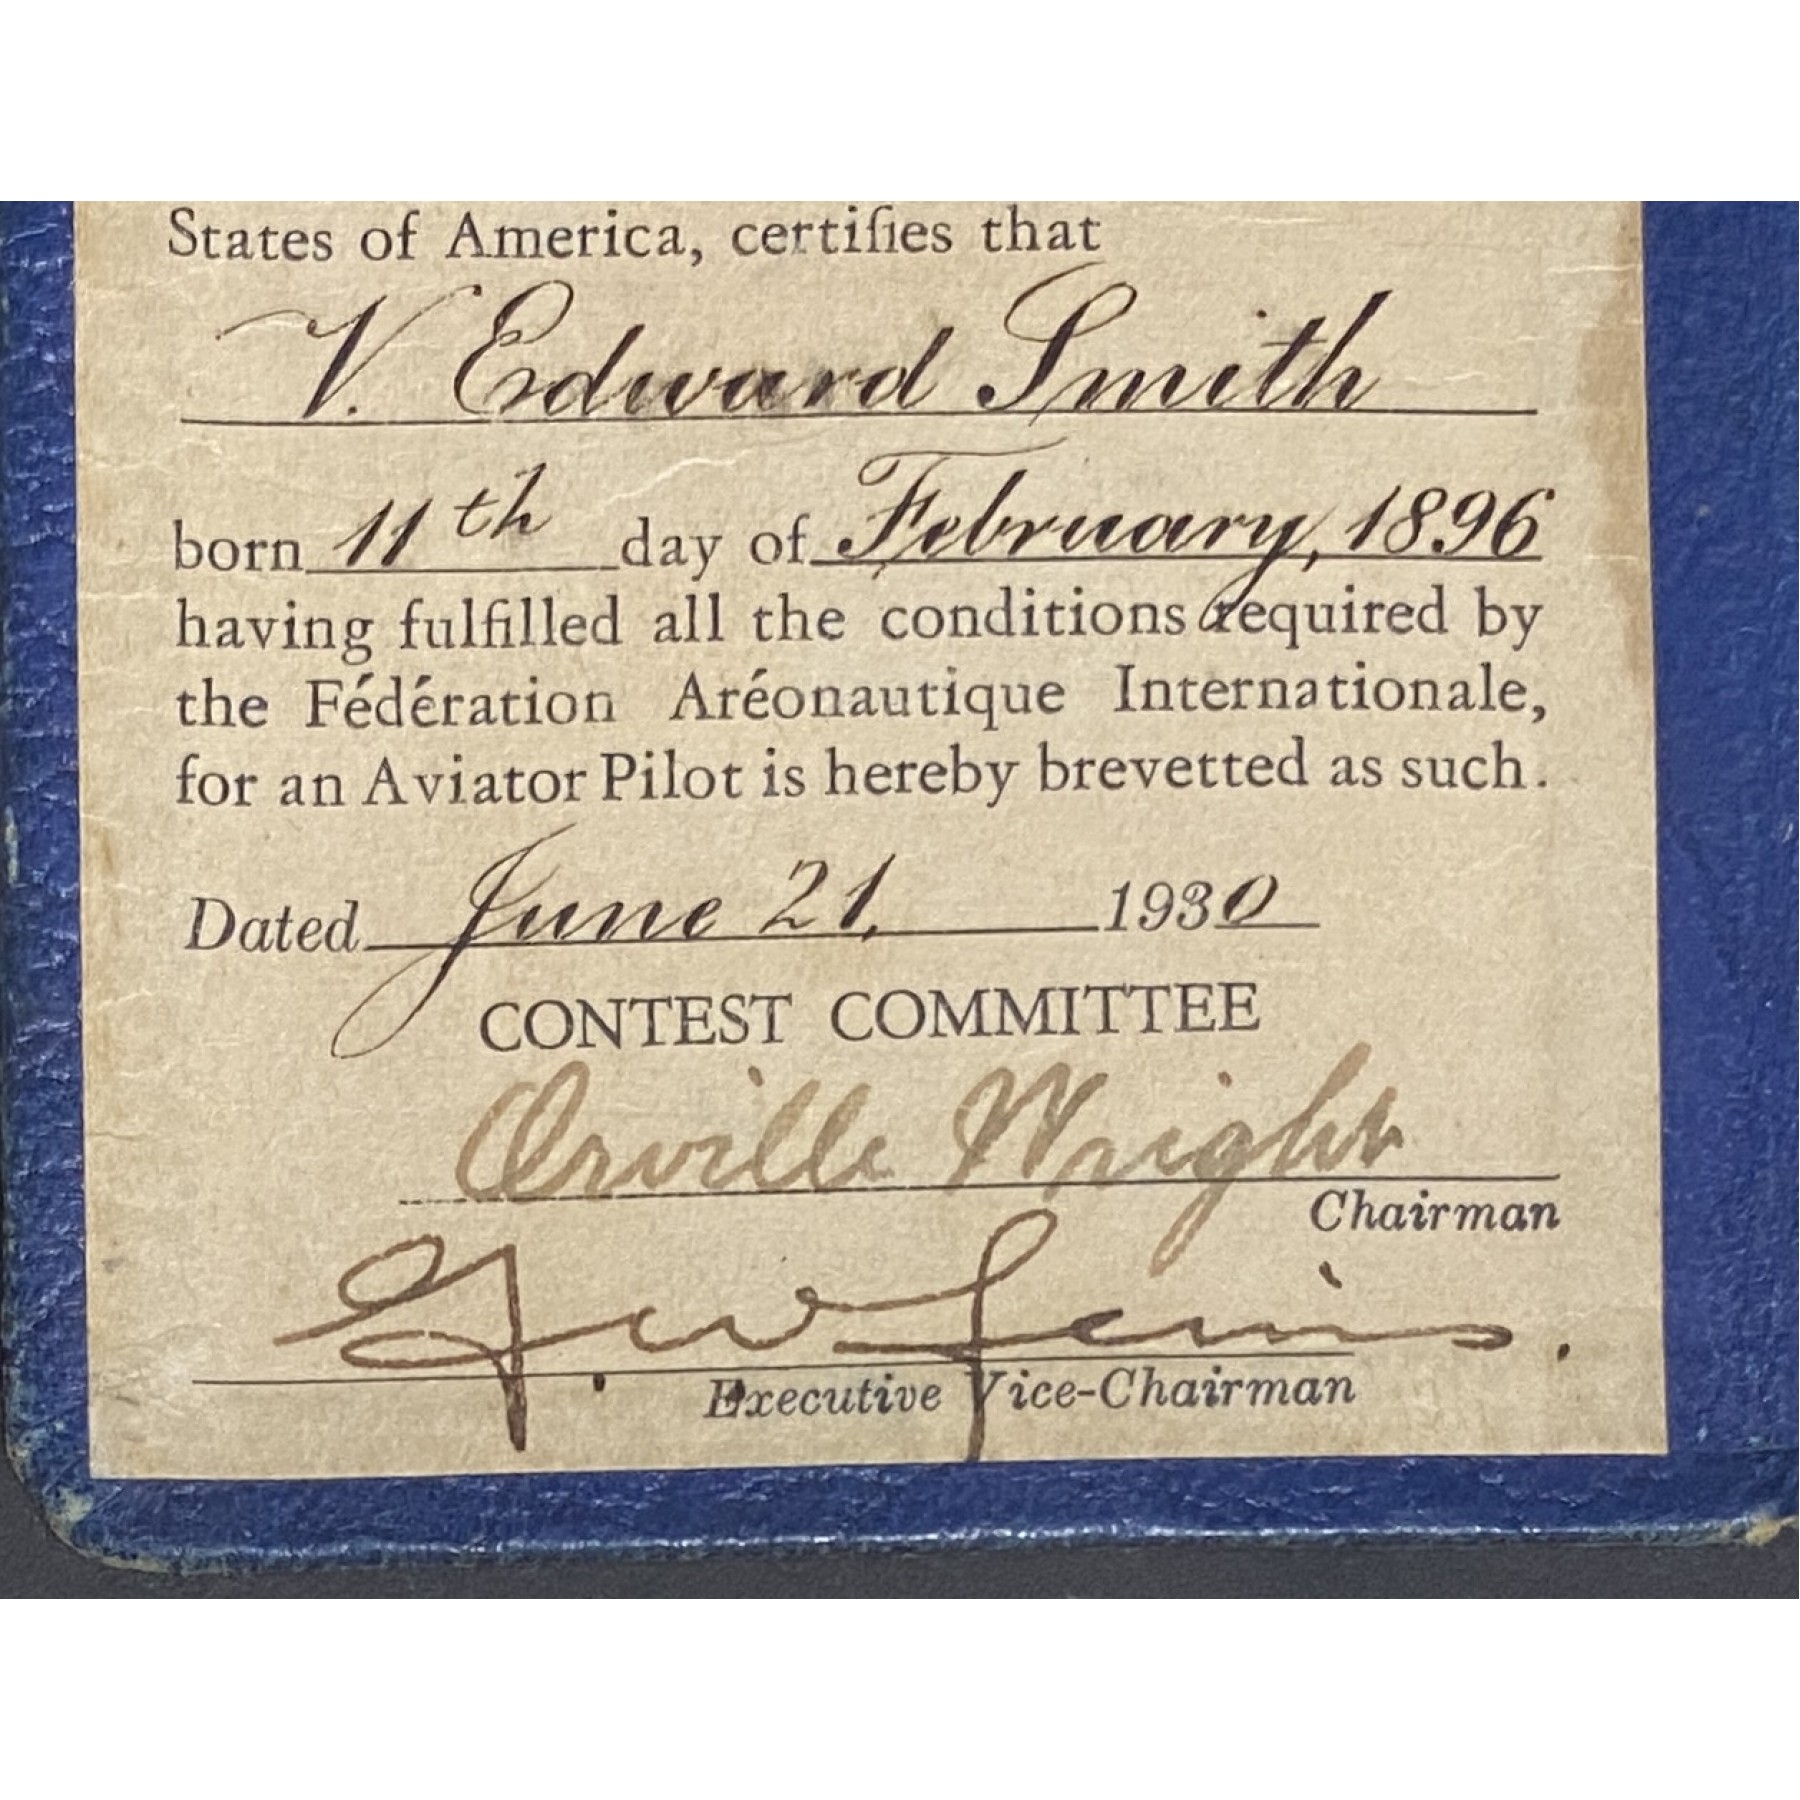 States of America, certifies that
V. Edward Smith
born 11th day of February, 1896
having fulfilled all the conditions required by
the Fédération Aréonautique Internationale,
for an Aviator Pilot is hereby brevetted as such.
Dated June 21, 1930
CONTEST COMMITTEE
Orville Wright
Chairman
G. W. Lewis.
Executive Vice-Chairman